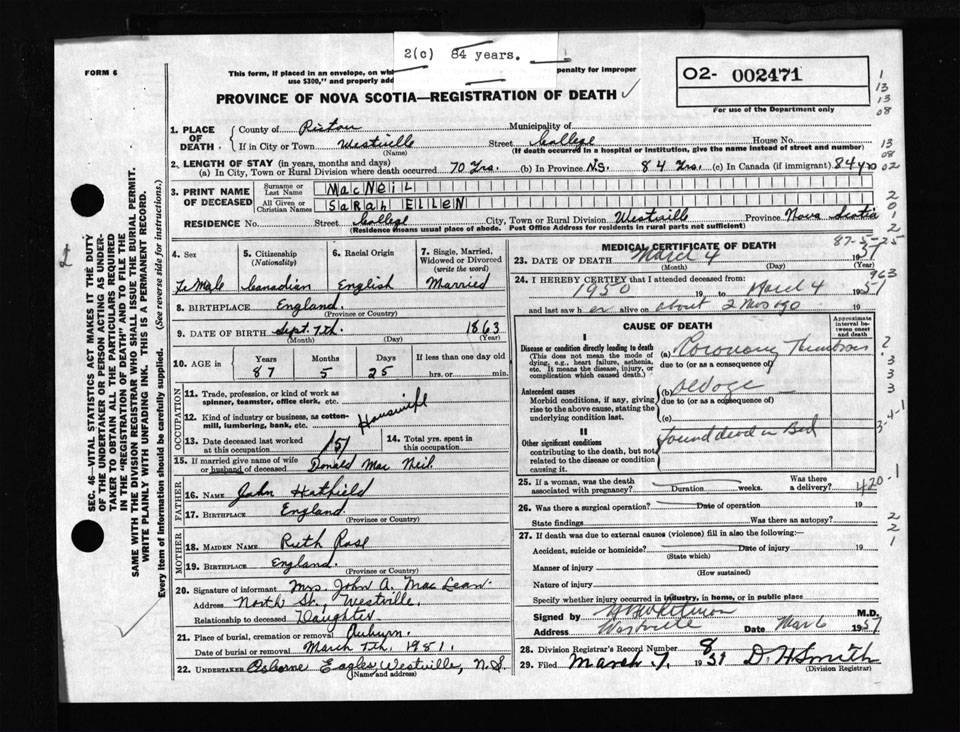 2(c) 84 years.
FORM 6
This form, if placed in an envelope, on wh penalty for improper
use $300," and properly add
O2- 002471
PROVINCE OF NOVA SCOTIA—REGISTRATION OF DEATH ✓
For use of the Department only
1. PLACE OF DEATH. County of Pictou Municipality of
If in City or Town Westville Street College House No.
(Name) (If death occurred in a hospital or institution, give the name instead of street and number)
2. LENGTH OF STAY (in years, months and days)
(a) In City, Town or Rural Division where death occurred 70 Yrs. (b) In Province N.S. 84 Yrs. (c) In Canada (if immigrant) 84 yrs
3. PRINT NAME OF DECEASED Surname or Last Name MacNeil
All Given or Christian Names SaRah ELLEN
RESIDENCE No. Street College City, Town or Rural Division Westville Province Nova Scotia
(Residence means usual place of abode. Post Office Address for residents in rural parts not sufficient)
4. Sex 5. Citizenship (Nationality) 6. Racial Origin 7. Single, Married, Widowed or Divorced (write the word)
FeMale Canadian English Married
8. BIRTHPLACE England
(Province or Country)
9. DATE OF BIRTH Sept. 7th. 1863
(Month) (Day) (Year)
10. AGE in Years Months Days If less than one day old
87 5 25 hrs. or min.
OCCUPATION
11. Trade, profession, or kind of work as spinner, teamster, office clerk, etc.
12. Kind of industry or business, as cotton-mill, lumbering, bank, etc. Housewife
13. Date deceased last worked at this occupation 1951 14. Total yrs. spent in this occupation
15. If married give name of wife or husband of deceased Donald Mac Neil
FATHER
16. NAME John Hatfield
17. BIRTHPLACE England
(Province or Country)
MOTHER
18. MAIDEN NAME Ruth Rose
19. BIRTHPLACE England.
(Province or Country)
20. Signature of informant Mrs. John A. MacLean
Address North St, Westville,
Relationship to deceased Daughter
21. Place of burial, cremation or removal Auburn.
Date of burial or removal March 7th, 1951.
22. UNDERTAKER Osborne Eagles Westville, N.S.
(Name and address)
MEDICAL CERTIFICATE OF DEATH
87-5-25
23. DATE OF DEATH March 4 1951
(Month) (Day) (Year)
24. I HEREBY CERTIFY that I attended deceased from:
1950 19 to March 4 1951
and last saw h er alive on about 2 mos ago 19
CAUSE OF DEATH
Approximate interval between onset and death
I
Disease or condition directly leading to death (a) Coronary Thrombosis
(This does not mean the mode of dying, e.g., heart failure, asthenia, etc. It means the disease, injury, or complication which caused death.)
due to (or as a consequence of)
Antecedent causes (b) Old age
Morbid conditions, if any, giving rise to the above cause, stating the underlying condition last.
due to (or as a consequence of)
(c)
II
Other significant conditions found dead in Bed
contributing to the death, but not related to the disease or condition causing it.
25. If a woman, was the death associated with pregnancy? Duration weeks. Was there a delivery?
420-1
26. Was there a surgical operation? Date of operation 19
State findings Was there an autopsy?
27. If death was due to external causes (violence) fill in also the following:—
Accident, suicide or homicide? Date of injury 19
(State which)
Manner of injury
(How sustained)
Nature of injury
Specify whether injury occurred in industry, in home, or in public place
Signed by M.D.
Address Westville Date Mar 6 1951
28. Division Registrar's Record Number 8
29. Filed March 7, 1951 D. H Smith
(Division Registrar)
SEC. 46—VITAL STATISTICS ACT MAKES IT THE DUTY
OF THE UNDERTAKER OR PERSON ACTING AS UNDER-
TAKER TO OBTAIN ALL THE PARTICULARS REQUIRED
IN THE "REGISTRATION OF DEATH" AND TO FILE THE
SAME WITH THE DIVISION REGISTRAR WHO SHALL ISSUE THE BURIAL PERMIT.
WRITE PLAINLY WITH UNFADING INK. THIS IS A PERMANENT RECORD.
Every item of Information should be carefully supplied. (See reverse side for instructions.)